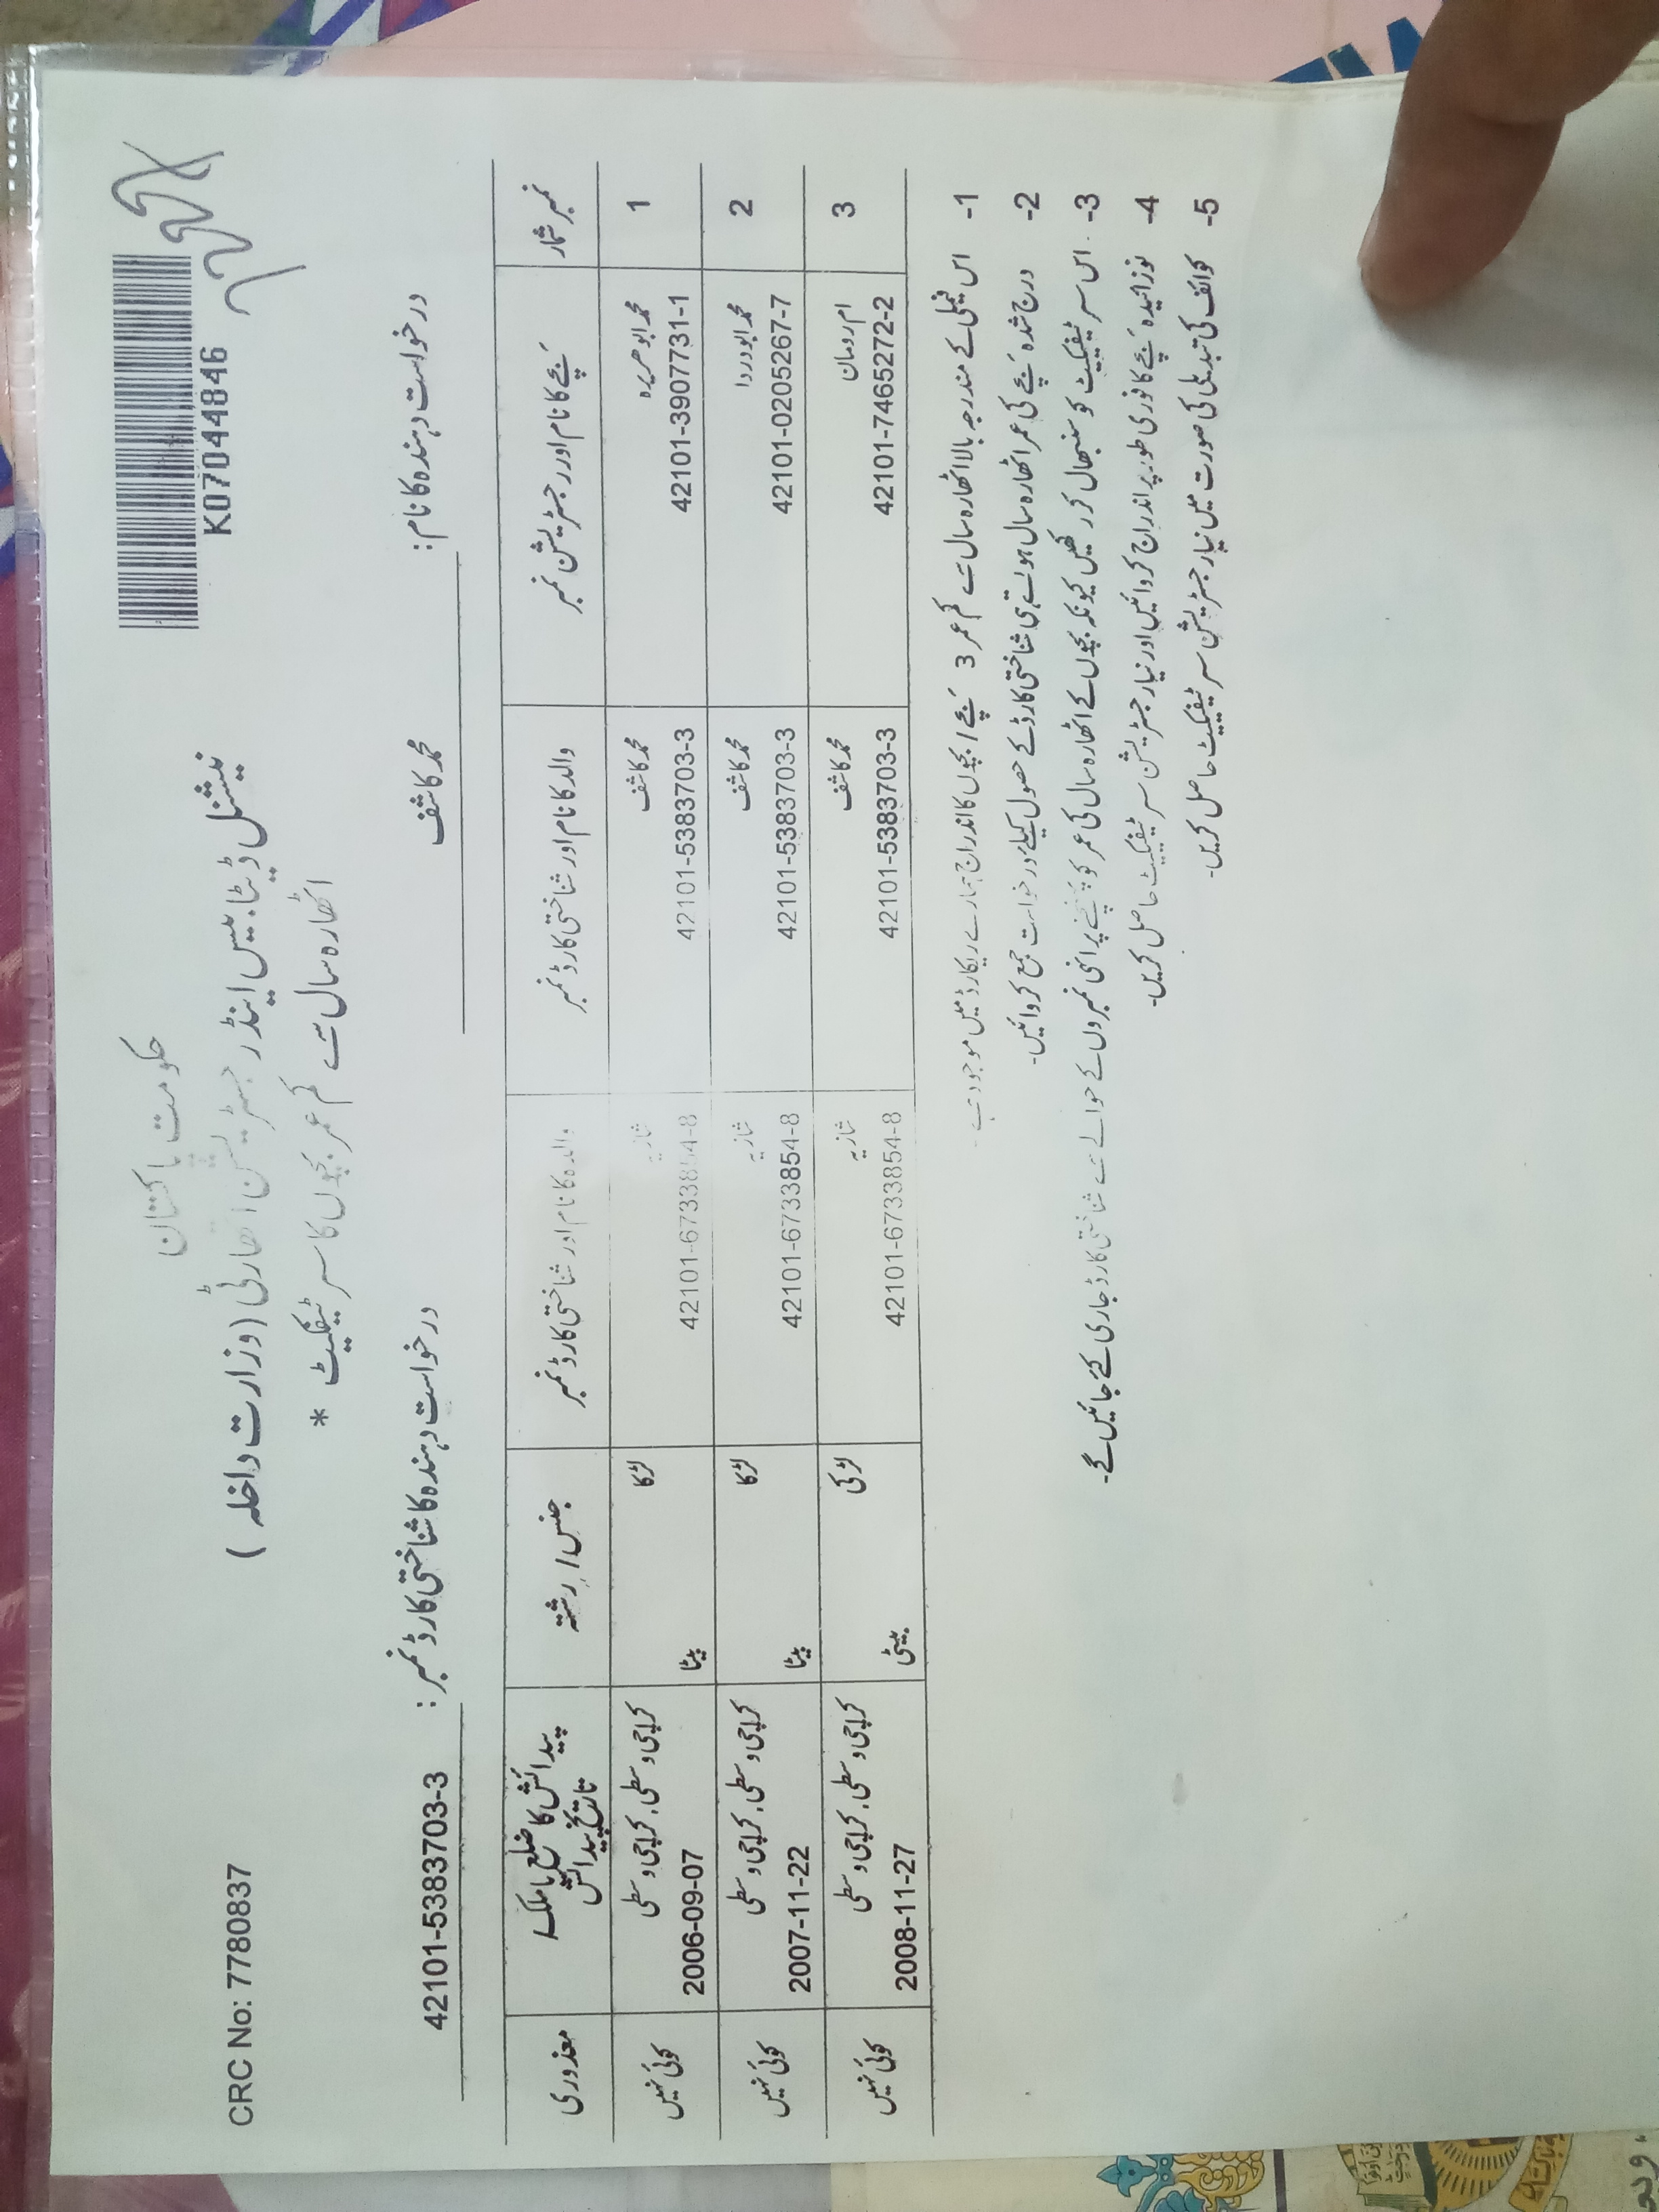 K07044846
حکومت پاکستان
CRC No: 7780837
نیشنل ڈیٹا بیس اینڈ رجسٹریشن اتھارٹی (وزارت داخلہ)
اٹھارہ سال سے کم عمر بچوں کا سرٹیفکیٹ *
درخواست دہندہ کا نام: محمد کاشف درخواست دہندہ کا شناختی کارڈ نمبر: 42101-5383703-3
نمبر شمار بچے کا نام اور رجسٹریشن نمبر والد کا نام اور شناختی کارڈ نمبر والدہ کا نام اور شناختی کارڈ نمبر جنس / رشتہ پیدائش کا ضلع یا ملک / تاریخ پیدائش معذوری
1 محمد ابوھریرہ محمد کاشف شازیہ لڑکا کراچی وسطی، کراچی وسطی کوئی نہیں
42101-3907731-1 42101-5383703-3 42101-6733854-8 بیٹا 2006-09-07
2 محمد ابودردا محمد کاشف شازیہ لڑکا کراچی وسطی، کراچی وسطی کوئی نہیں
42101-0205267-7 42101-5383703-3 42101-6733854-8 بیٹا 2007-11-22
3 ام رومان محمد کاشف شازیہ لڑکی کراچی وسطی، کراچی وسطی کوئی نہیں
42101-7465272-2 42101-5383703-3 42101-6733854-8 بیٹی 2008-11-27
1- اس فیملی کے مندرجہ بالا اٹھارہ سال سے کم عمر 3 بچے / بچوں کا اندراج ہمارے ریکارڈ میں موجود ہے۔
2- درج شدہ بچے کی عمر اٹھارہ سال ہوتے ہی شناختی کارڈ کے حصول کیلئے درخواست جمع کروائیں۔
3- اس سرٹیفکیٹ کو سنبھال کر رکھیں کیونکہ بچوں کے اٹھارہ سال کی عمر کو پہنچنے پر انہی نمبروں کے حوالے سے شناختی کارڈ جاری کئے جائیں گے۔
4- نوزائیدہ بچے کا فوری طور پر اندراج کروائیں اور نیا رجسٹریشن سرٹیفکیٹ حاصل کریں۔
5- کوائف کی تبدیلی کی صورت میں نیا رجسٹریشن سرٹیفکیٹ حاصل کریں۔